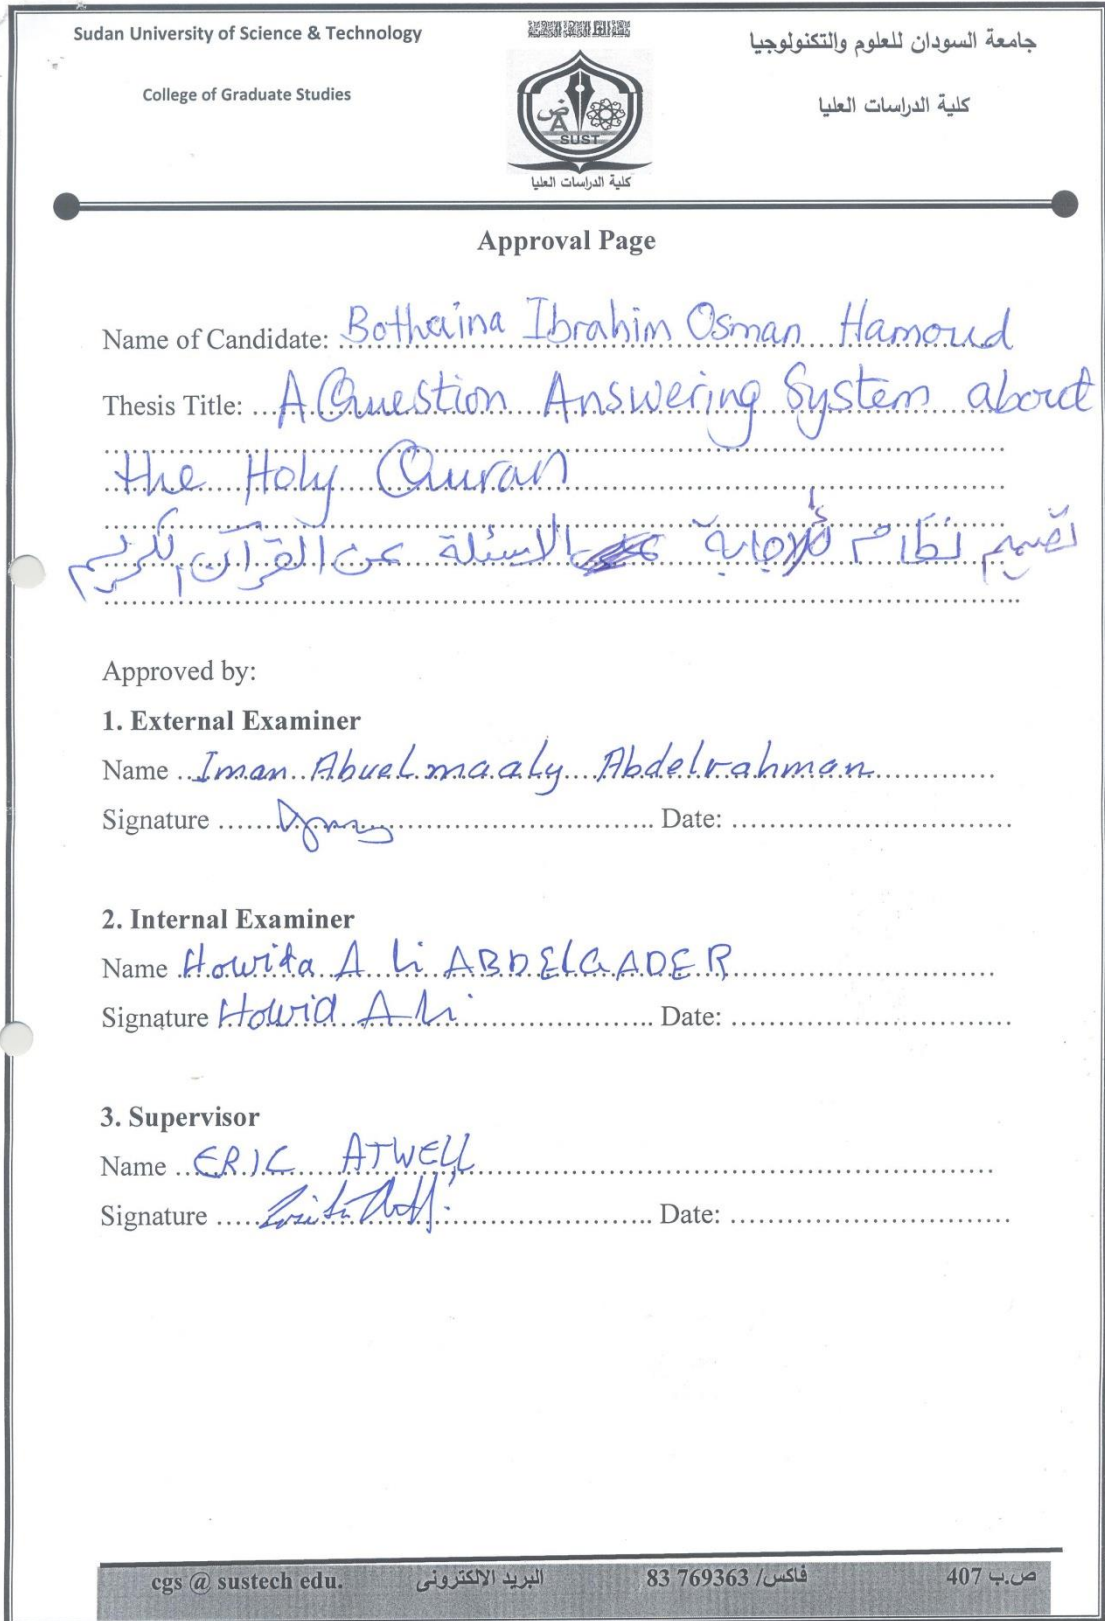 Sudan University of Science & Technology
College of Graduate Studies
جامعة السودان للعلوم والتكنولوجيا
كلية الدراسات العليا
ض
A
SUST
كلية الدراسات العليا
Approval Page
Name of Candidate: Bothaina Ibrahim Osman Hamoud
Thesis Title: A Question Answering System about
the Holy Quran
تصميم نظام للإجابة الاسئلة عن القرآن الكريم
Approved by:
1. External Examiner
Name Iman Abuelmaaly Abdelrahman
Signature Date:
2. Internal Examiner
Name Howida Ali ABDELGADER
Signature Howid Ali Date:
3. Supervisor
Name ERIC ATWELL
Signature Date:
cgs @ sustech edu. البريد الالكترونى فاكس/ 769363 83 ص.ب 407